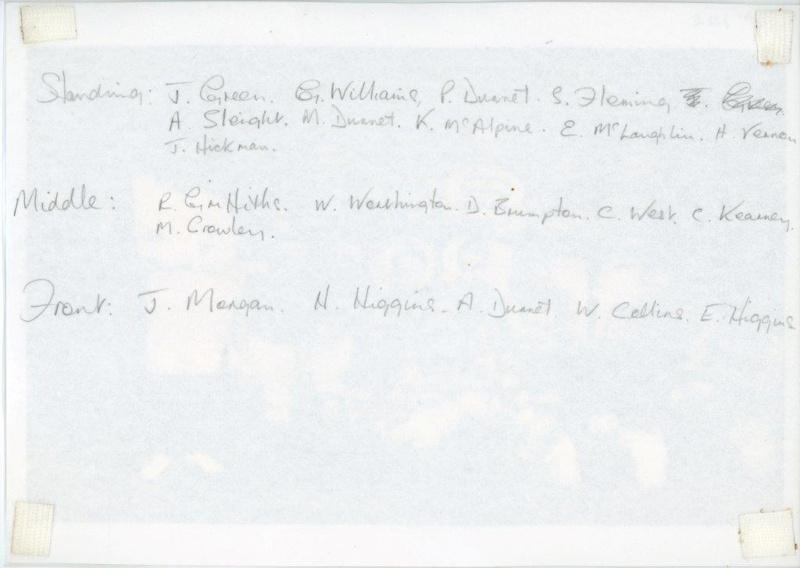 Standing: J. Green. G. Williams, P. Dunnet. S. Fleming
A. Sleight. M. Dunnet. K. McAlpine. E. McLaughlin. H. Vernon
J. Hickman.
Middle: R. Griffiths. W. Worthington. D. Brumpton. C. West. C. Kearney.
M. Crowley.
Front: J. Morgan. N. Higgins. A. Dunnet W. Collins. E. Higgins